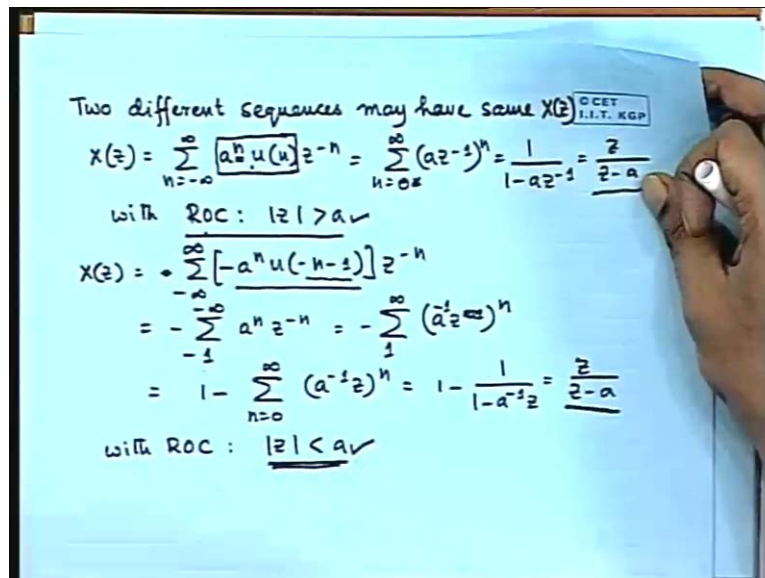 Two different sequances may have same X(z)
© CET
I.I.T. KGP
X(z) = ∑_{n=-∞}^{∞} [aⁿ u(n)] z^{-n} = ∑_{n=0}^{∞} (az^{-1})ⁿ = 1/(1-az^{-1}) = z/(z-a)
with ROC: |z| > a ✓
X(z) = ∑_{-∞}^{∞} [-aⁿ u(-n-1)] z^{-n}
= - ∑_{-1}^{-∞} aⁿ z^{-n} = - ∑_{1}^{∞} (a^{-1}z)ⁿ
= 1 - ∑_{n=0}^{∞} (a^{-1}z)ⁿ = 1 - 1/(1-a^{-1}z) = z/(z-a)
with ROC : |z| < a ✓